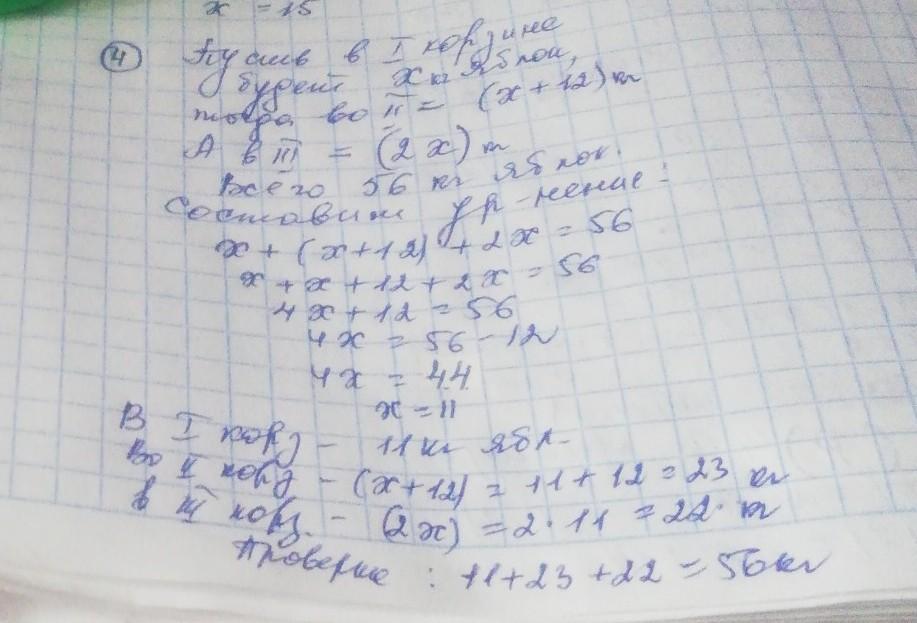 x = 15
④ Пусть в I корзине
будет x кг яблок,
тогда во II = (x+12) кг
А в III = (2x) кг
Всего 56 кг яблок.
Составим ур-нение:
x + (x+12) + 2x = 56
x + x + 12 + 2x = 56
4x + 12 = 56
4x = 56 - 12
4x = 44
x = 11
В I корз - 11 кг ябл.
Во II корз - (x+12) = 11 + 12 = 23 кг
В III корз. - (2x) = 2 · 11 = 22 кг
Проверка : 11+23+22 = 56 кг